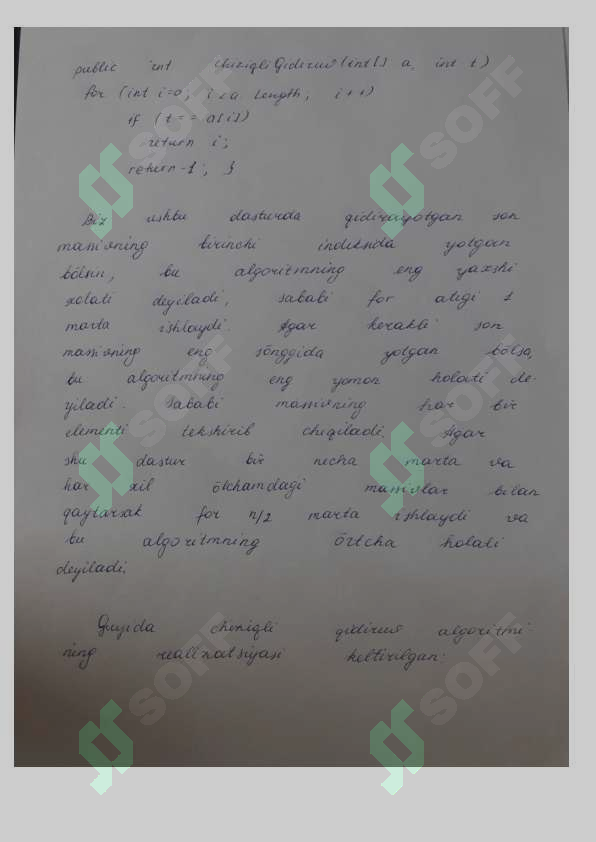 public int chiziqliQidiruv(int[] a, int t)
for (int i=0; i<a. length; i++)
if (t == a[i])
return i;
return-1; }
Biz ushbu dasturda qidirayotgan son
massivning birinchi indeksida yotgan
bo'lsin, bu algoritmning eng yaxshi
xolati deyiladi, sababi for atigi 1
marta ishlaydi. Agar kerakli son
massivning eng so'nggida yotgan bo'lsa,
bu algoritmning eng yomon holati de-
yiladi. sababi massivning har bir
elementi tekshirib chiqiladi. Agar
shu dastur bir necha marta va
har xil o'lchamdagi massivlar bilan
qaytarsak for n/2 marta ishlaydi va
bu algoritmning o'rtcha holati
deyiladi.
Quyida chiziqli qidiruv algoritmi
ning realizatsiyasi keltirilgan:
SOFF
SOFF
SOFF
SOFF
SOFF
SOFF